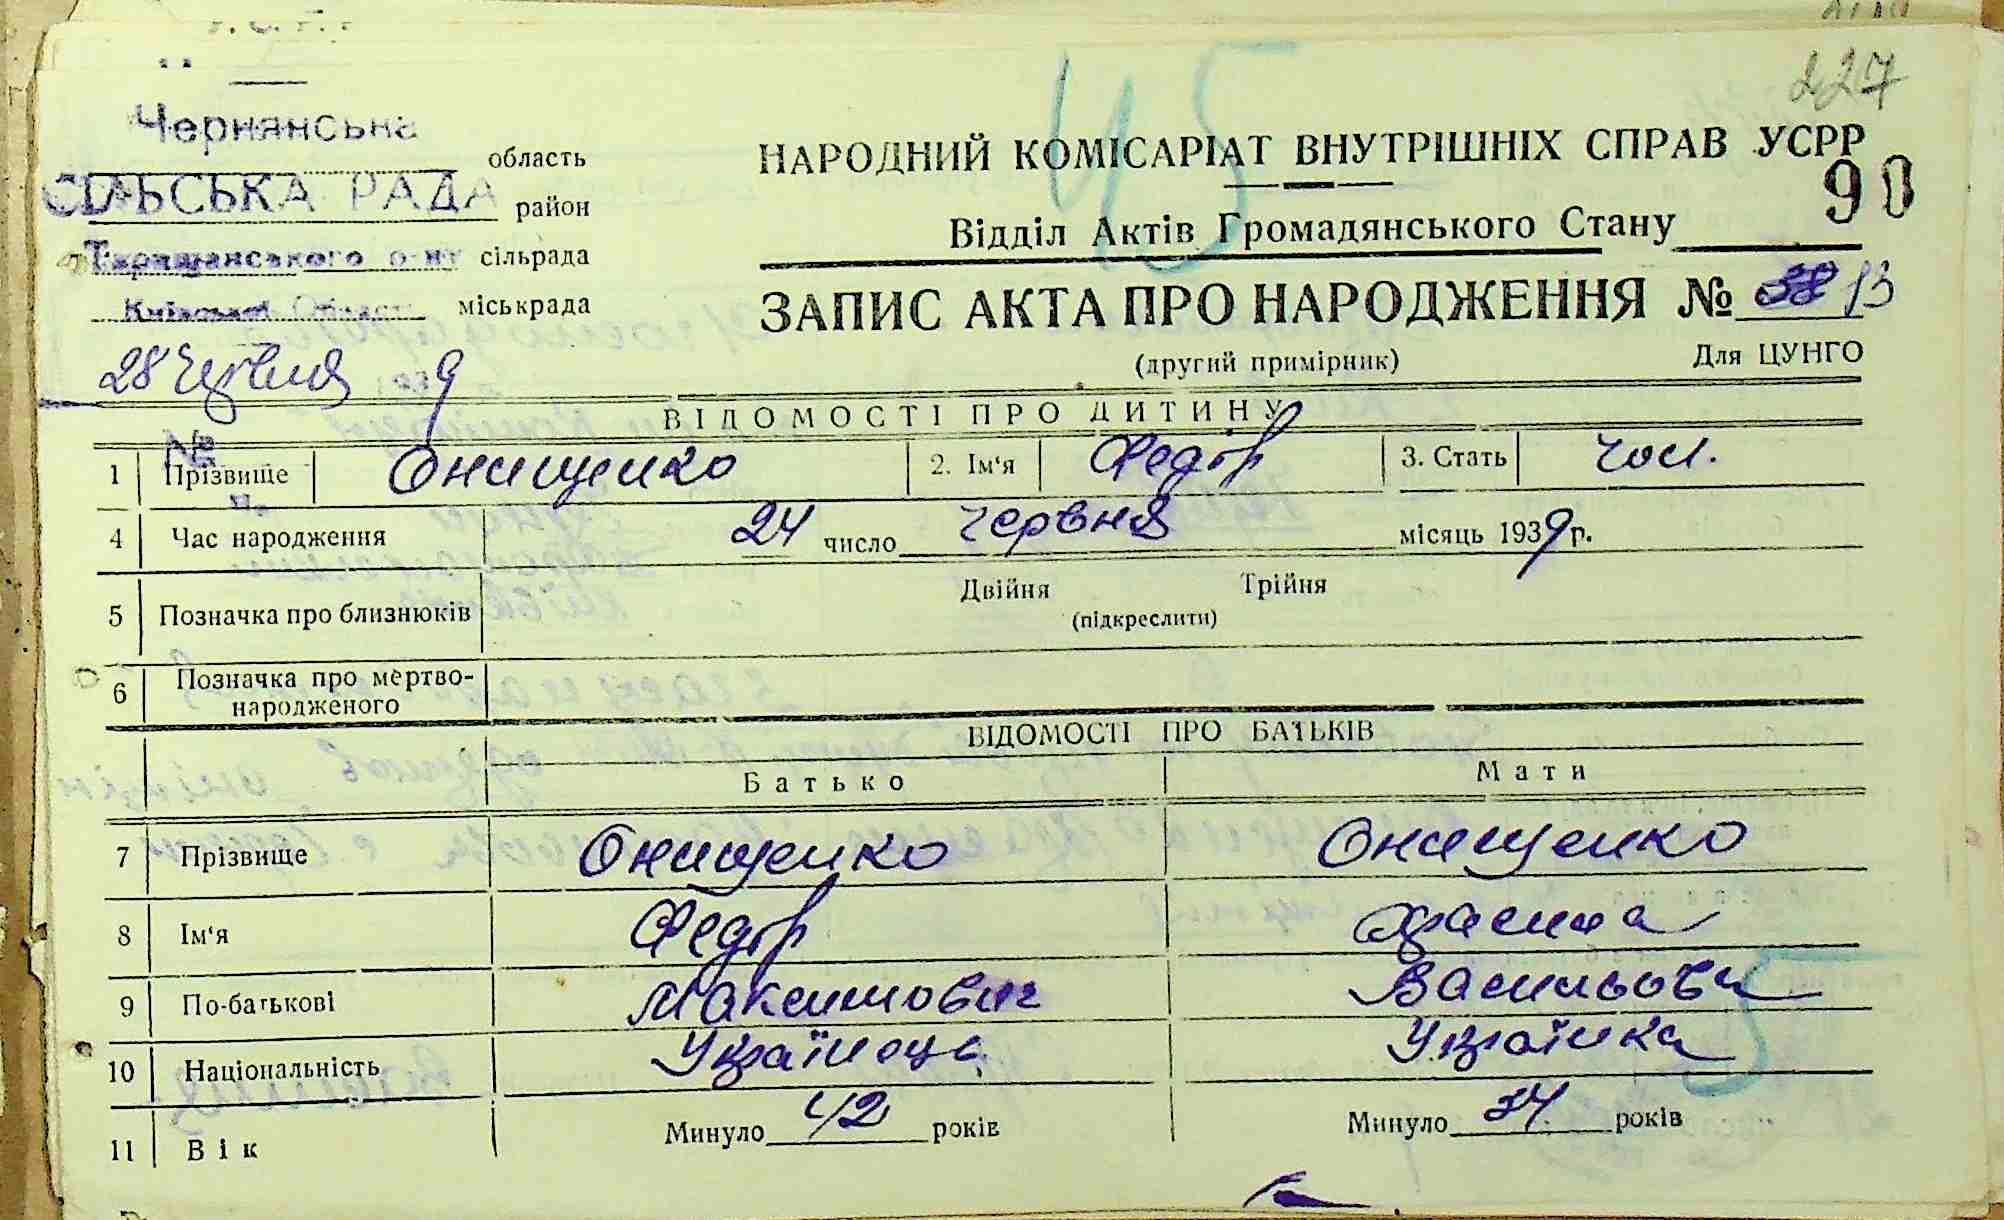 227
45
Чернянська
область
СІЛЬСЬКА РАДА
район
Таращанського р-ну сільрада
Київської Області міськрада
28 Червня 9
№
НАРОДНИЙ КОМІСАРІАТ ВНУТРІШНІХ СПРАВ УСРР
90
Відділ Актів Громадянського Стану
ЗАПИС АКТА ПРО НАРОДЖЕННЯ № 38 13
(другий примірник)
Для ЦУНГО
ВІДОМОСТІ ПРО ДИТИНУ
1 Прізвище Онищенко 2. Ім'я Федір 3. Стать чол.
4 Час народження 24 число червня місяць 1939 р.
5 Позначка про близнюків Двійня Трійня
(підкреслити)
6 Позначка про мертво-
народженого
ВІДОМОСТІ ПРО БАТЬКІВ
Батько Мати
7 Прізвище Онищенко Онищенко
8 Ім'я Федір
9 По-батькові Максимович Васильовн
10 Національність Українець Українка
11 Вік Минуло 42 років Минуло 34 років
5